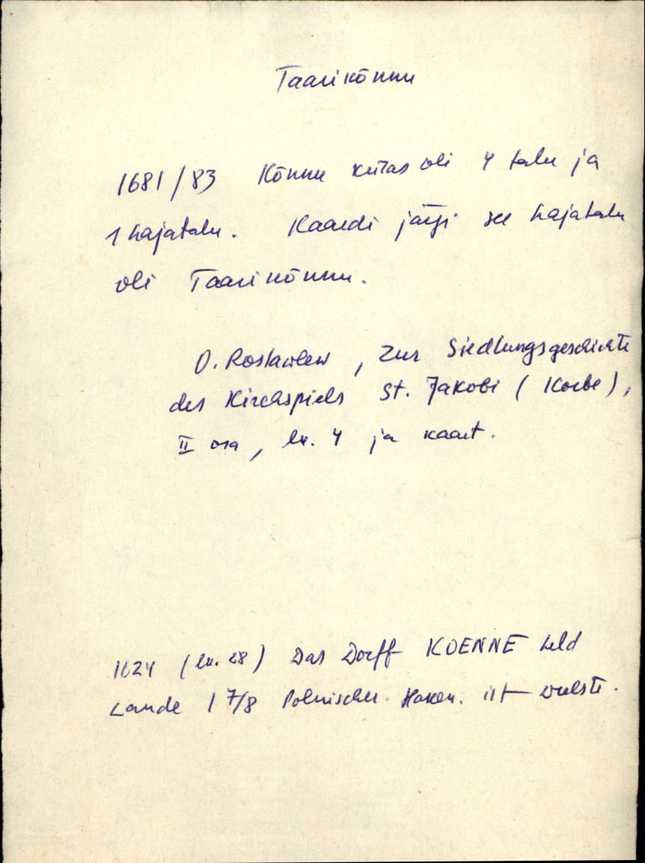 Taarikõnnu
1681/83 Kõnnu külas oli 4 talu ja
1 hajatalu. Kaardi järgi see hajatalu
oli Taarikõnnu.
O. Roslawlew, Zur Siedlungsgeschichte
des Kirchspiels St. Jakobi (Korbe),
II osa, lk. 4 ja kaart.
1624 (lk. 28) Das Dorff KOENNE held
Lande 1 7/8 Polnischer Haken. ist wüste.